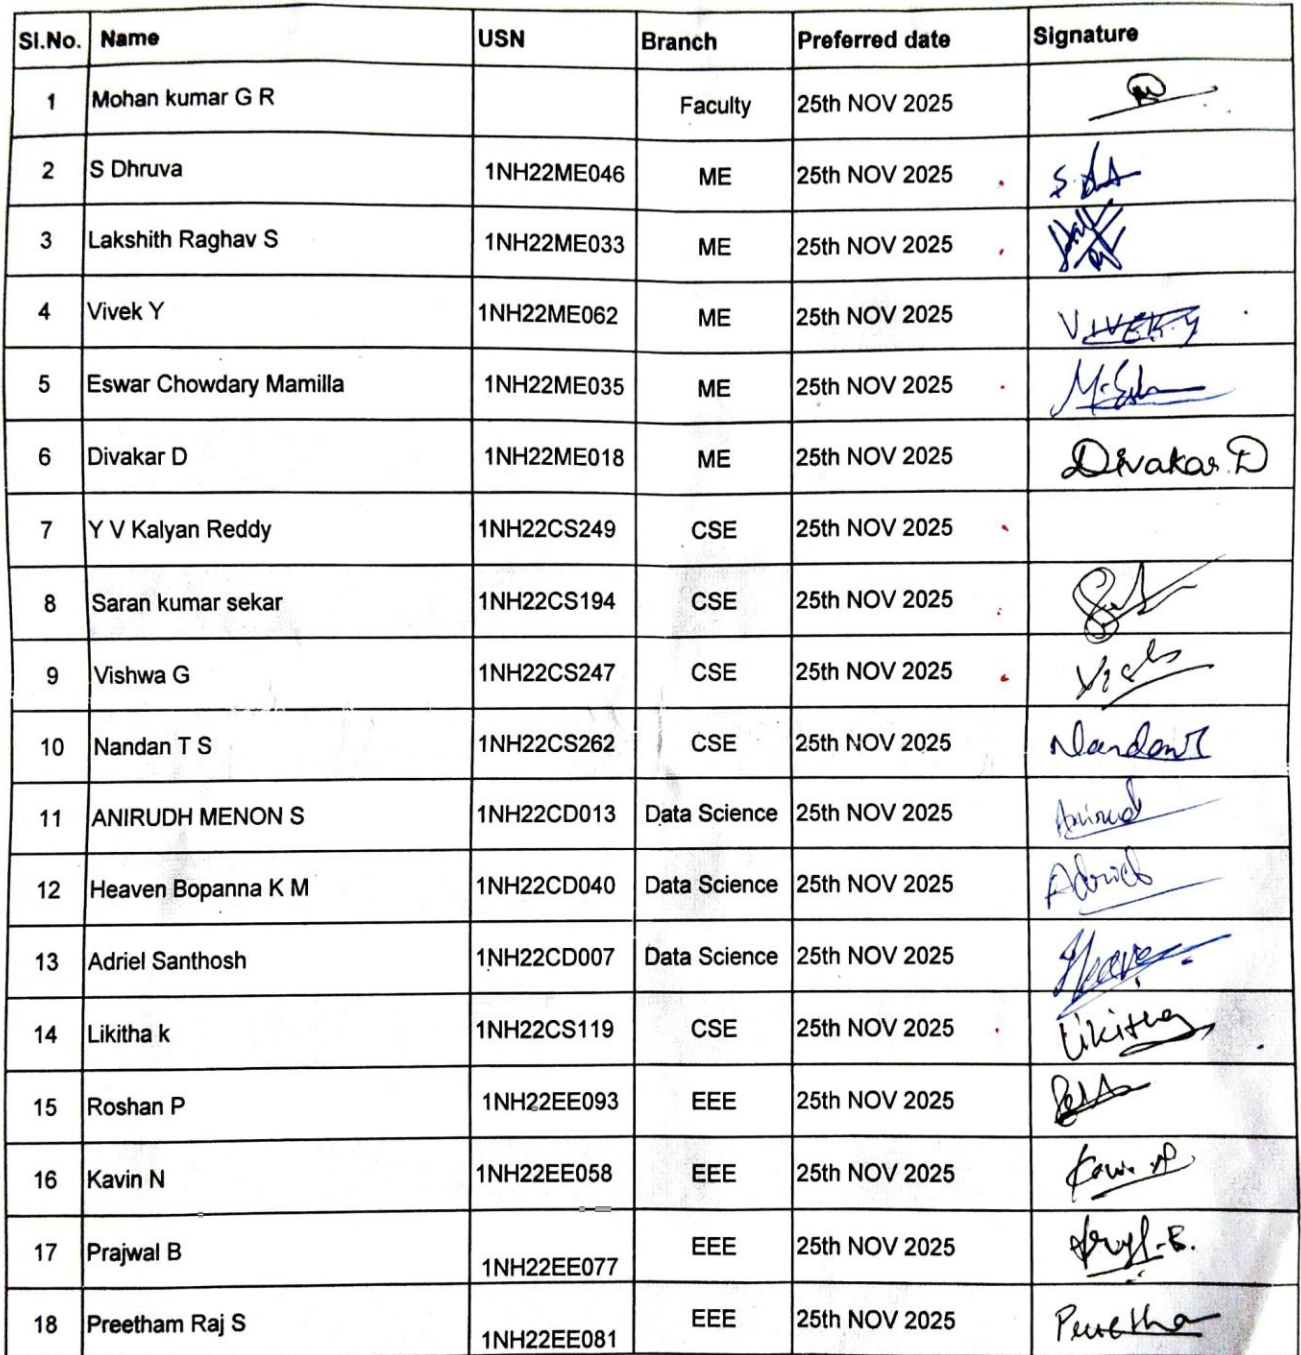 Sl.No. Name USN Branch Preferred date Signature
1 Mohan kumar G R Faculty 25th NOV 2025
2 S Dhruva 1NH22ME046 ME 25th NOV 2025
3 Lakshith Raghav S 1NH22ME033 ME 25th NOV 2025
4 Vivek Y 1NH22ME062 ME 25th NOV 2025 VIVEK.Y
5 Eswar Chowdary Mamilla 1NH22ME035 ME 25th NOV 2025
6 Divakar D 1NH22ME018 ME 25th NOV 2025 Divakar.D
7 Y V Kalyan Reddy 1NH22CS249 CSE 25th NOV 2025
8 Saran kumar sekar 1NH22CS194 CSE 25th NOV 2025
9 Vishwa G 1NH22CS247 CSE 25th NOV 2025
10 Nandan T S 1NH22CS262 CSE 25th NOV 2025
11 ANIRUDH MENON S 1NH22CD013 Data Science 25th NOV 2025 Anirud
12 Heaven Bopanna K M 1NH22CD040 Data Science 25th NOV 2025 Adriel
13 Adriel Santhosh 1NH22CD007 Data Science 25th NOV 2025 Heaven
14 Likitha k 1NH22CS119 CSE 25th NOV 2025 Likitha
15 Roshan P 1NH22EE093 EEE 25th NOV 2025
16 Kavin N 1NH22EE058 EEE 25th NOV 2025
17 Prajwal B 1NH22EE077 EEE 25th NOV 2025
18 Preetham Raj S 1NH22EE081 EEE 25th NOV 2025